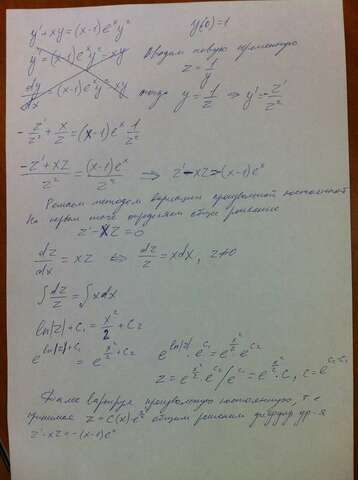 y'+xy=(x-1)e^x y^2    y(0)=1
y'=(x-1)e^x y^2-xy    Вводим новую переменную
z=1/y
dy/dx=(x-1)e^x y^2-xy    тогда y=1/z ⇒ y'=-z'/z^2
-z'/z^2+x/z=(x-1)e^x 1/z^2
(-z'+xz)/z^2=(x-1)e^x/z^2 ⇒ z'-xz=-(x-1)e^x
Решаем методом вариации произвольной постоянной
На первом шаге определяем общее решение
z'-xz=0
dz/dx=xz ⇔ dz/z=xdx, z≠0
∫dz/z=∫xdx
ln|z|+C1=x^2/2+C2
e^(ln|z|+C1)=e^(x^2/2+C2)    e^(ln|z|)·e^(C1)=e^(x^2/2)·e^(C2)
z=e^(x^2/2)·e^(C2)/e^(C1)=e^(x^2/2)·C, C=e^(C2-C1)
Далее варьируя произвольную постоянную, т.е
принимая z=C(x)·e^(x^2/2) общим решением диф ур-я
z'-xz=-(x-1)e^x